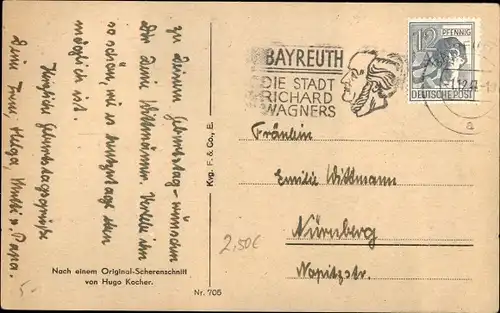 zu Deinem Geburtstag wünschen
Dir Deine Wittmännin. Verlebe ihn
so schön, wie es heutzutage eben
möglich ist.
Herzliche Geburtstagsgrüße
Deine Irma, Helga, Mutti u. Papa.
5-
Nach einem Original-Scherenschnitt
von Hugo Kocher.
Kvg. F. & Co., E.
Nr. 705
BAYREUTH
DIE STADT
RICHARD
WAGNERS
12 PFENNIG
DEUTSCHE POST
a
Fräulein
Emilie Wittmann
Nürnberg
2,50€